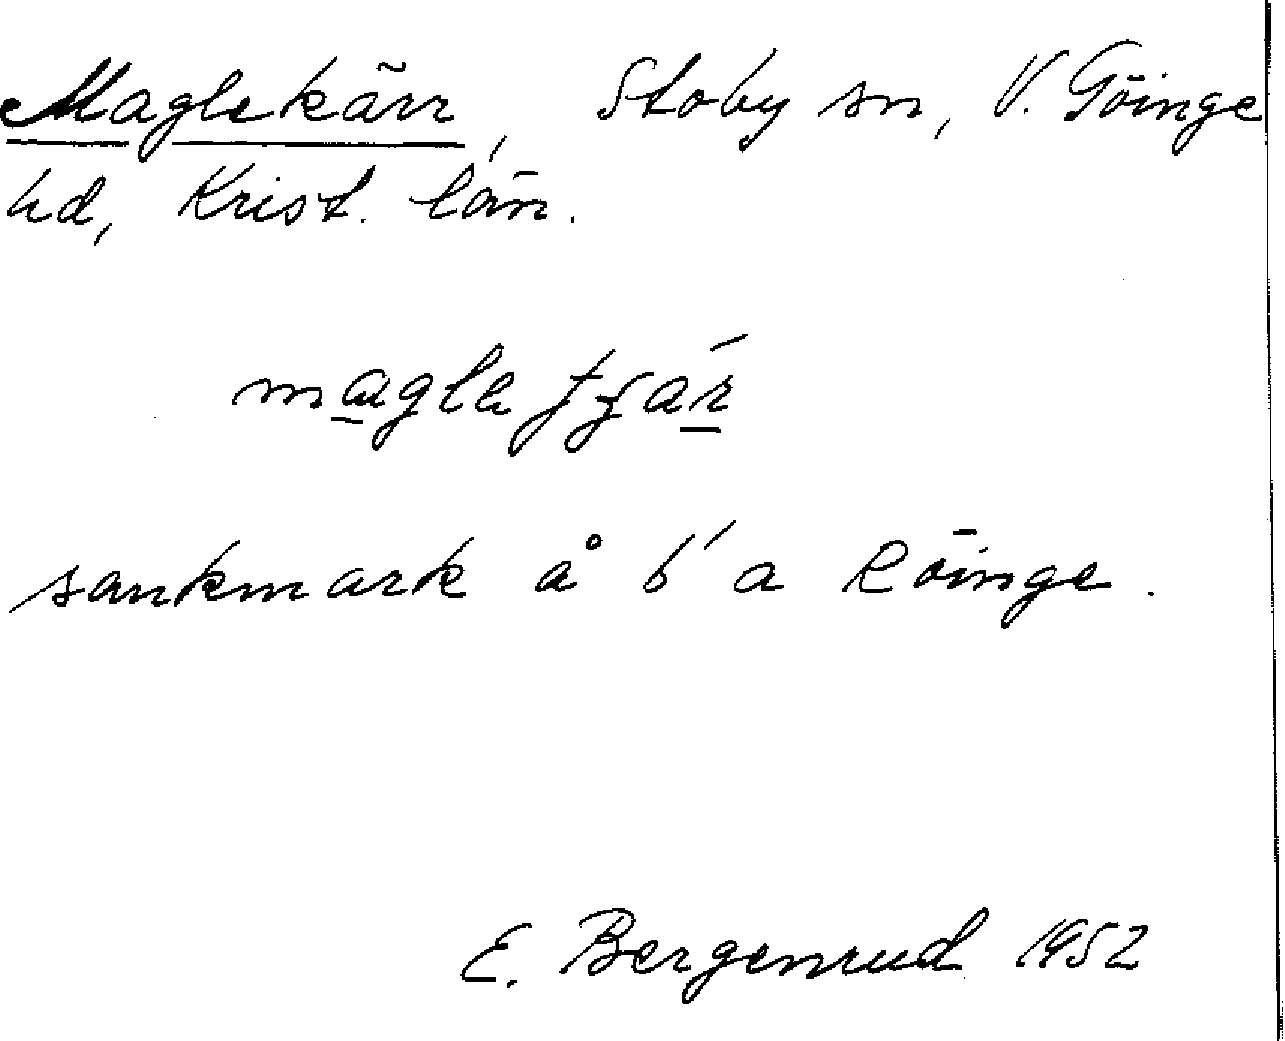 Maglekärr, Stoby sn, V. Göinge
hd, Krist. län.
sankmark å b'a Röinge.
E. Bergenrud 1952